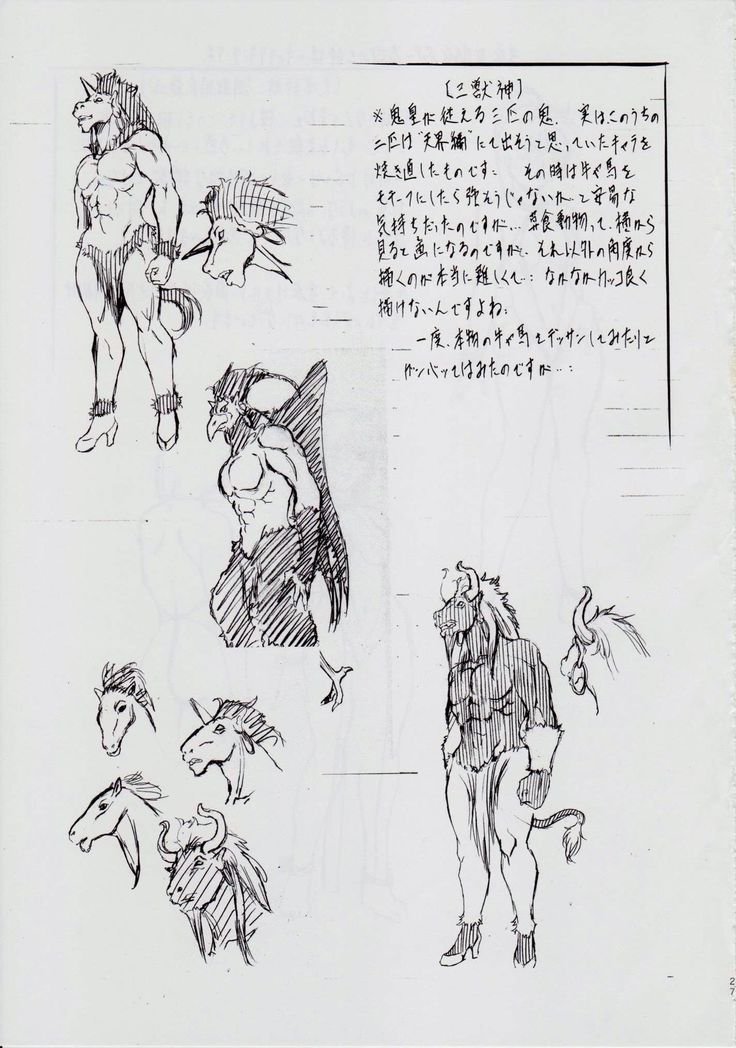 [三獣神]
※鬼皇が従える三匹の鬼. 実はこのうちの
二匹は"天界編"にて出そうと思っていたキャラを
焼き直したものです… その時は牛や馬を
モチーフにしたら強そうじゃないか…と安易な
気持ちだったのですが… 草食動物って、横から
見ると画になるのですが、それ以外の角度から
描くのが本当に難しくて…なかなかカッコ良く
描けないんですよね…
一度、本物の牛や馬でデッサンしてみたりして
ガンバってはみたのですが…:
27